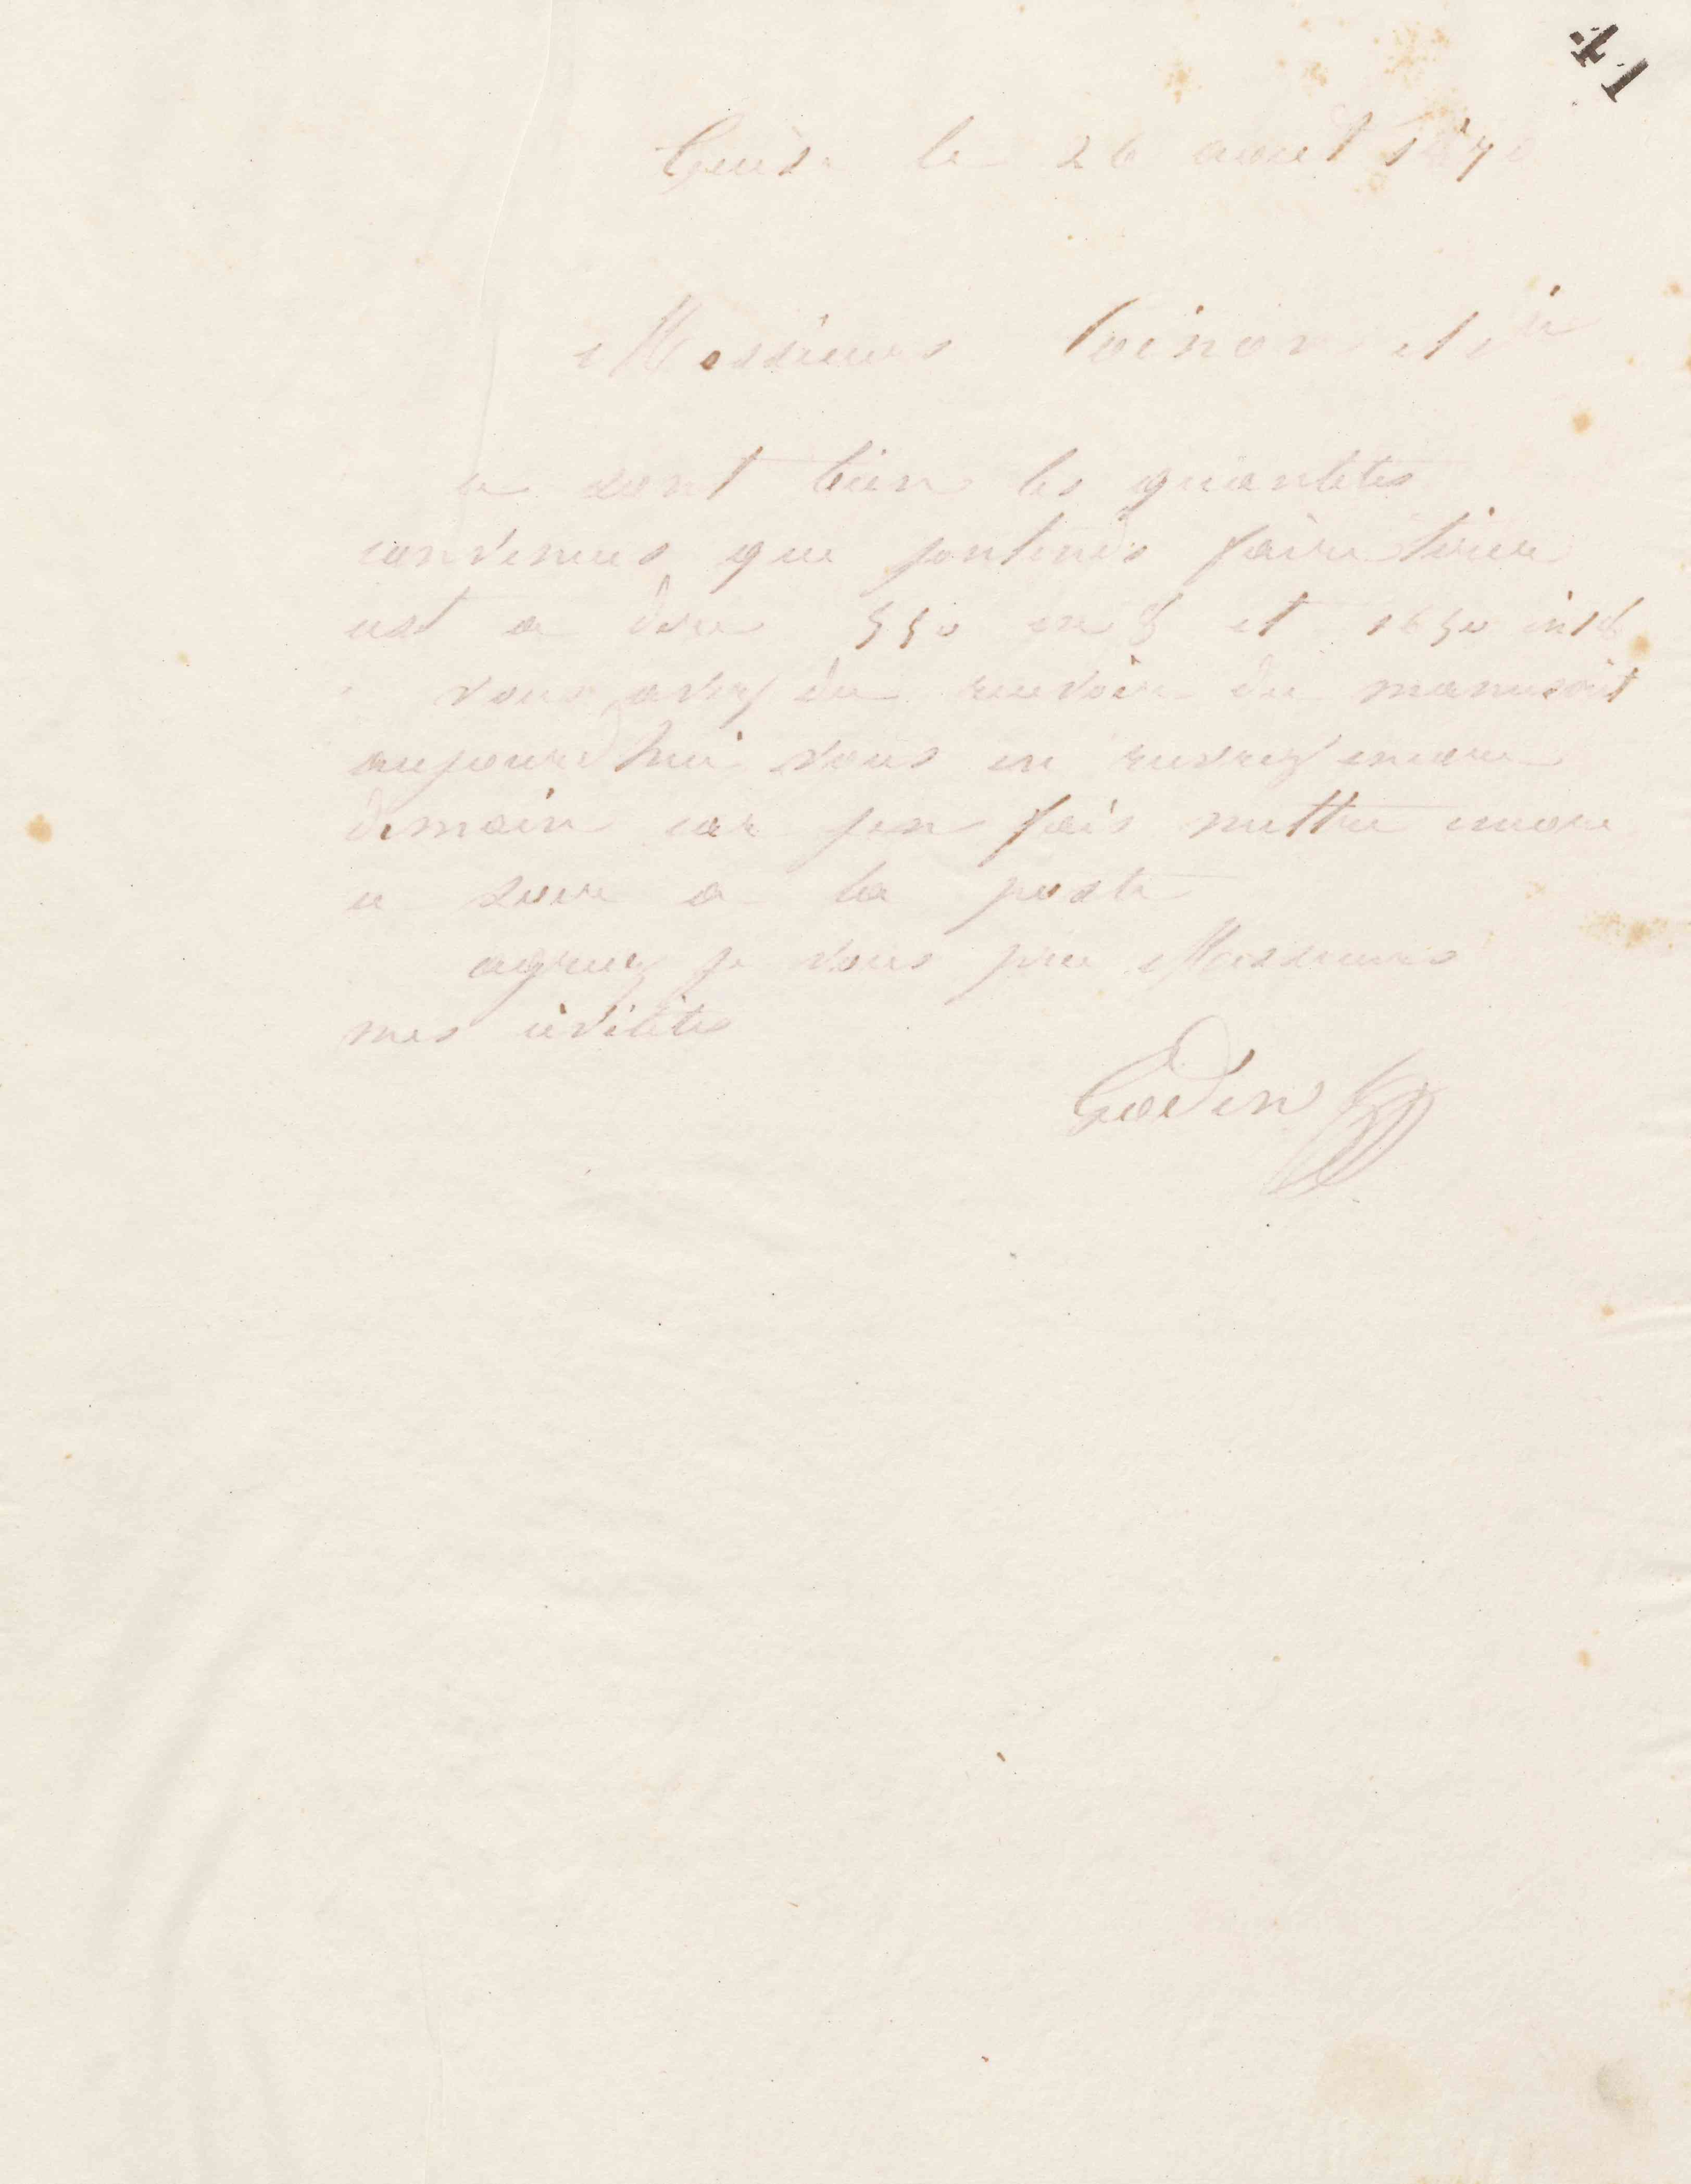 41
Guise le 26 aout 1870
Messieurs Toinon et Cie
ce sont bien les quantités
convenues que jentends faire tirer
cest a dire 550 in 8 et 1650 in 18
vous avez du recevoir du manuscrit
aujourdhui vous en recevrez encore
demain car jen fais mettre encore
ce soir a la poste
agreez je vous prie Messieurs
mes civilités
Godin